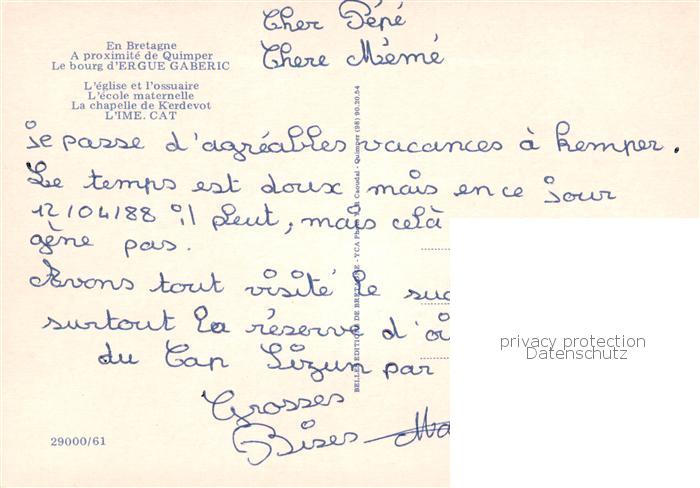 Cher Pépé
Chere Mémé
En Bretagne
A proximité de Quimper
Le bourg d'ERGUE GABERIC
L'église et l'ossuaire
L'école maternelle
La chapelle de Kerdevot
L'IME. CAT
je passe d'agréables vacances à kemper.
Le temps est doux mais en ce jour
12/04/88 il pleut, mais celà
gène pas.
Avons tout visité le sud
surtout la réserve d'oi
du Cap Sizun par
Grosses
Bises Ma
BELLES EDITIONS DE BRETAGNE - YCA Photo Y.R. Caoudal - Quimper (98) 90.20.54
29000/61
privacy protection
Datenschutz